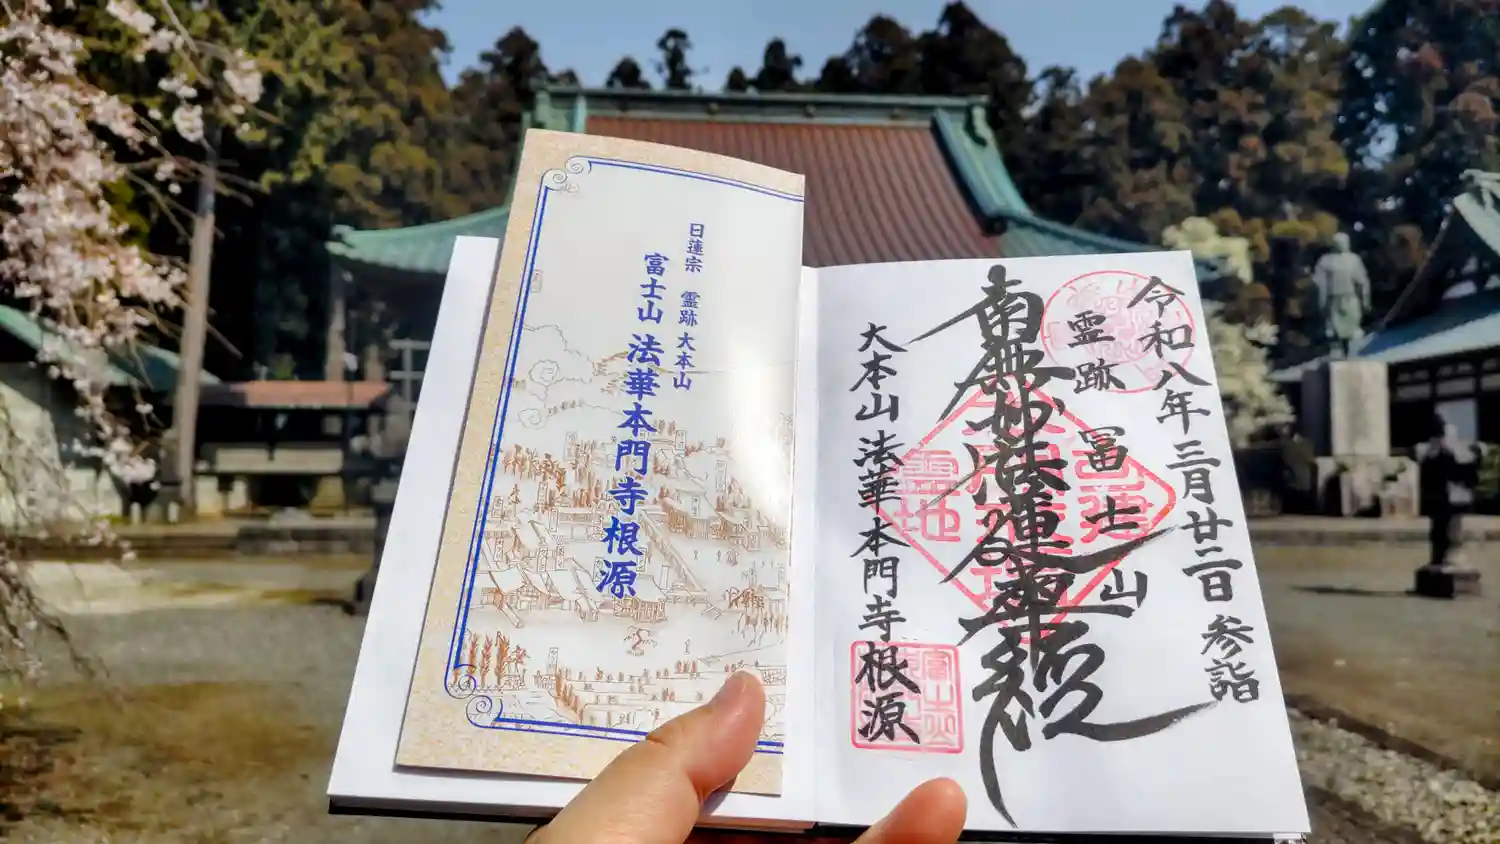 日蓮宗 霊跡 大本山
富士山 法華本門寺根源
令和八年三月廿二日 参詣
霊跡 冨士山
南無妙法蓮華経
大本山 法華本門寺根源
霊地